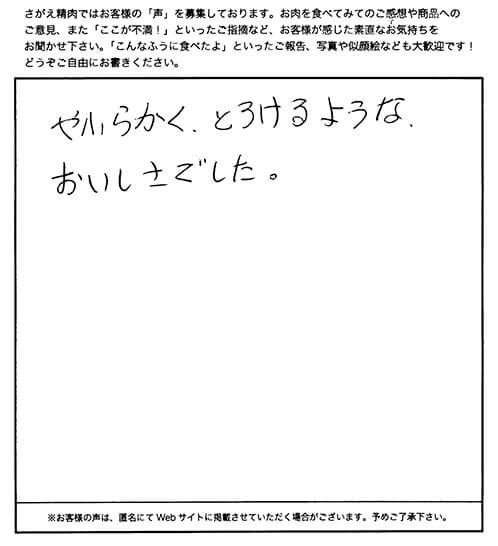 さがえ精肉ではお客様の「声」を募集しております。お肉を食べてみてのご感想や商品への
ご意見、また「ここが不満！」といったご指摘など、お客様が感じた素直なお気持ちを
お聞かせ下さい。「こんなふうに食べたよ」といったご報告、写真や似顔絵なども大歓迎です！
どうぞご自由にお書きください。
やわらかく、とろけるような、
おいしさでした。
※お客様の声は、匿名にてWebサイトに掲載させていただく場合がございます。予めご了承下さい。